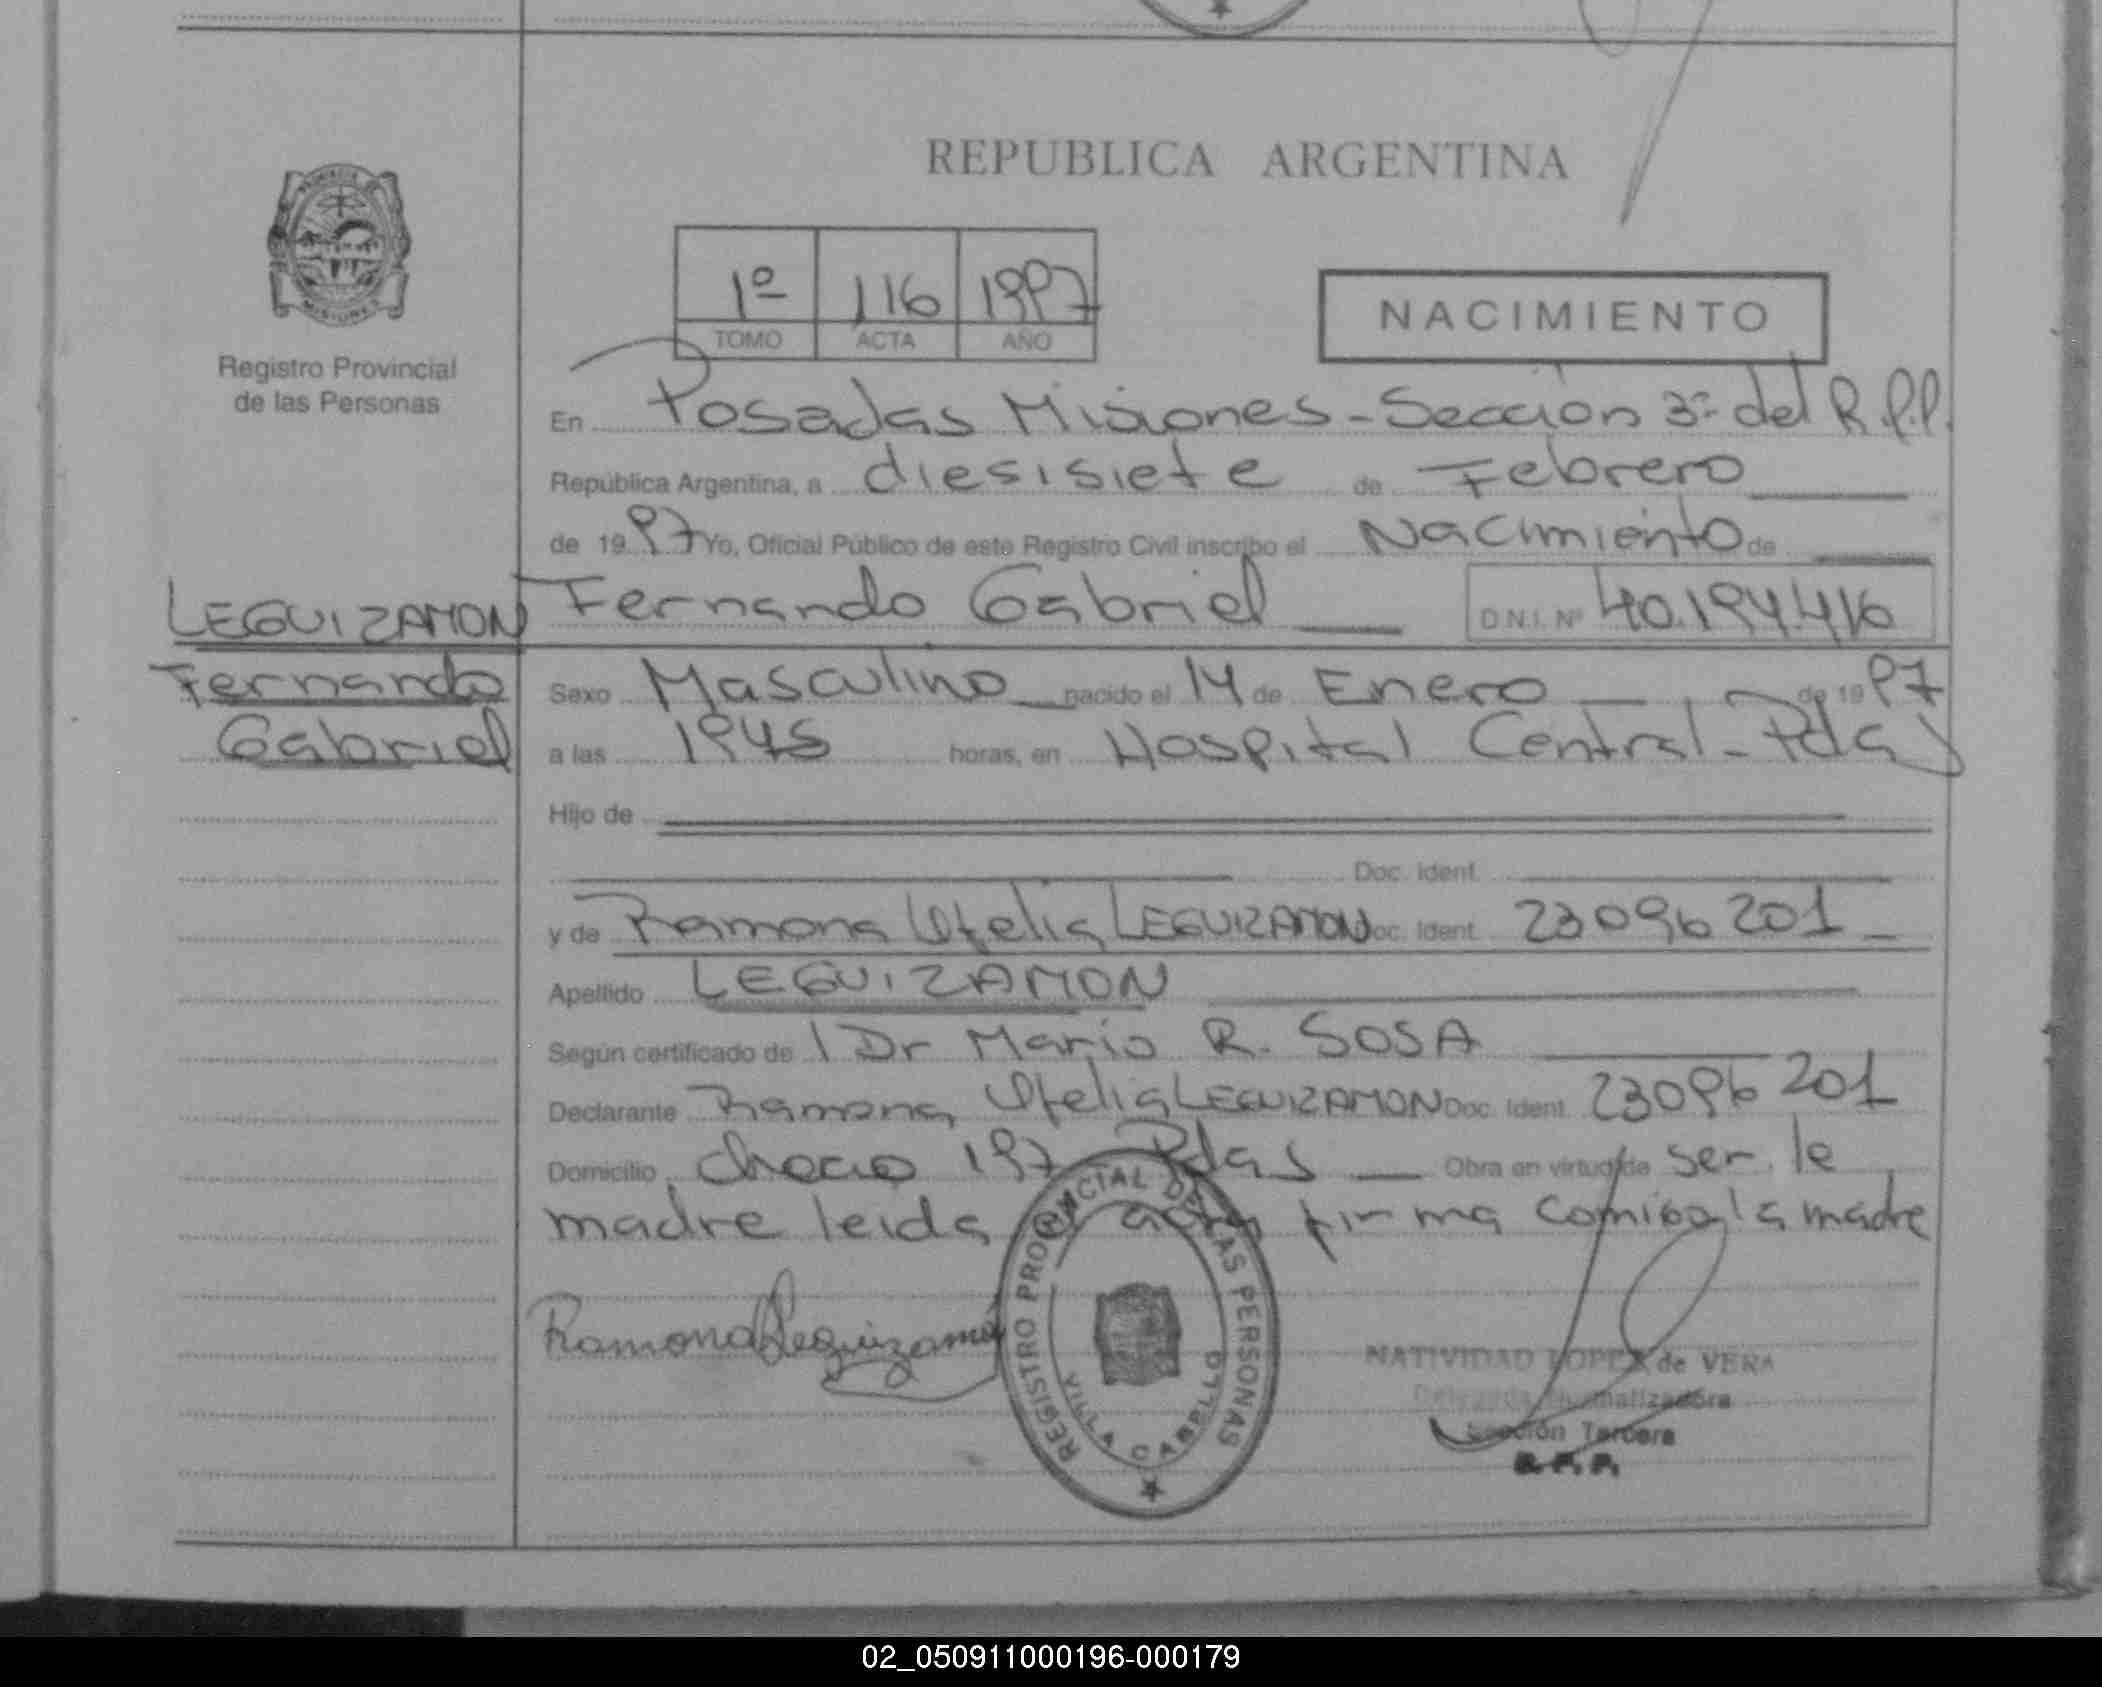 REPUBLICA ARGENTINA
PROVINCIA DE
MISIONES
Registro Provincial
de las Personas
1º 116 1997
TOMO ACTA AÑO
NACIMIENTO
En Posadas Misiones - Sección 3ª del R.P.P.
República Argentina, a diesisiete de Febrero
de 1997 Yo, Oficial Público de este Registro Civil inscribo el Nacimiento de
LEGUIZAMON Fernando Gabriel D.N.I. Nº 40.194.416
Fernando
Gabriel
Sexo Masculino nacido el 14 de Enero de 1997
a las 1945 horas, en Hospital Central - Pdas
Hijo de
Doc. Ident.
y de Ramona Ofelia LEGUIZAMON Doc. Ident. 23096201
Apellido LEGUIZAMON
Según certificado de l Dr Mario R. SOSA
Declarante Ramona Ofelia LEGUIZAMON Doc. Ident. 23096201
Domicilio chaco 197 Pdas Obra en virtud de ser la
madre leida el acta firma comigo la madre
Ramona Leguizamon
REGISTRO PROVINCIAL DE LAS PERSONAS
VILLA CABELLO
NATIVIDAD LOPEZ de VERA
Delegada Normatizadora
Sección Tercera
R.P.P.
02_050911000196-000179